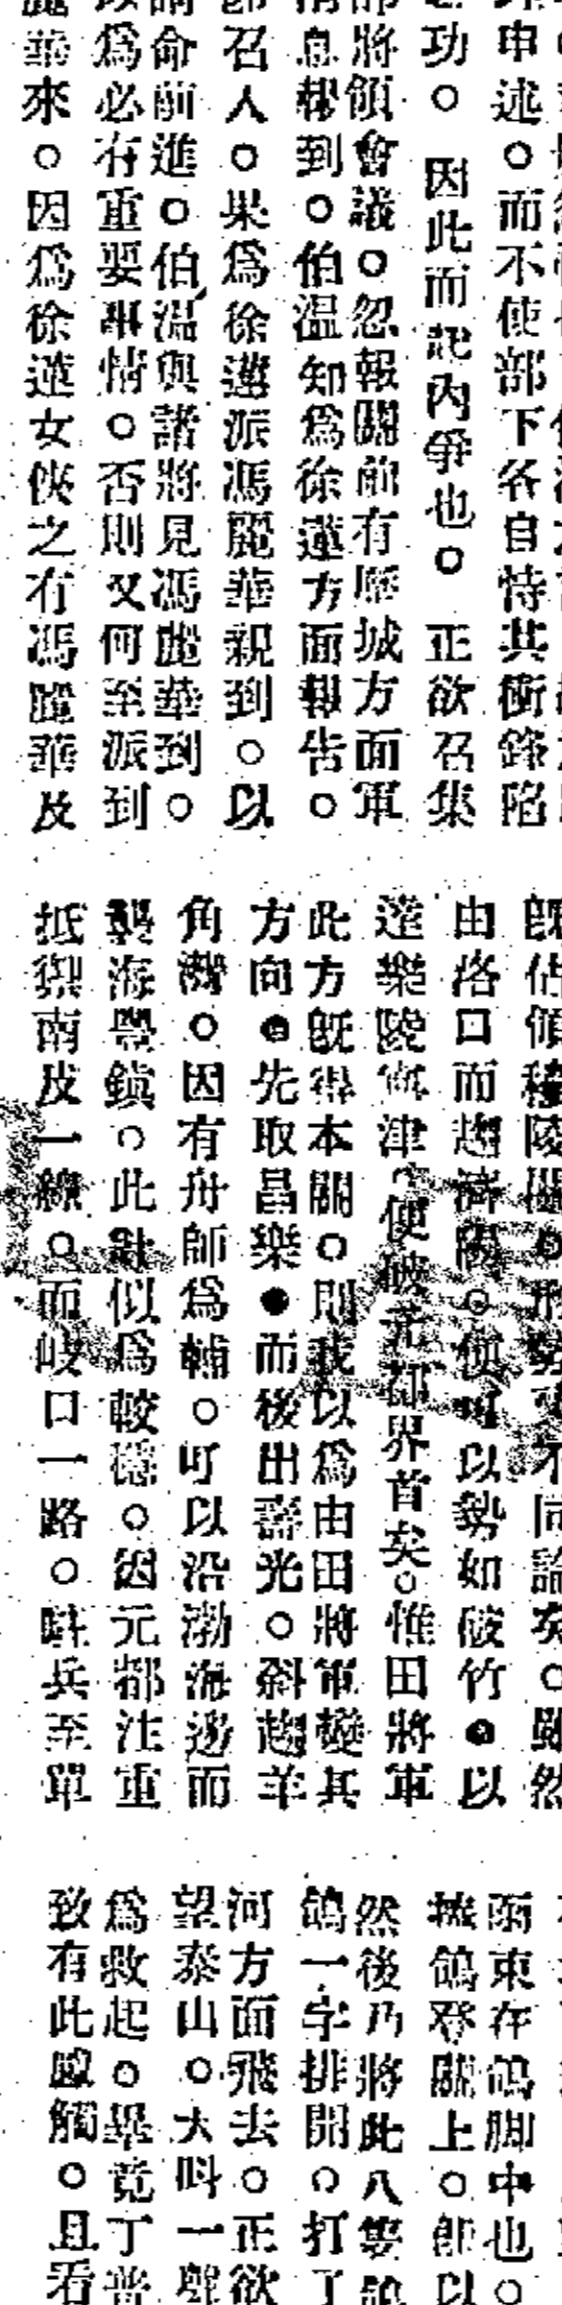 申述。而不使部下各自恃其衝鋒陷
功。因此而起內爭也。正欲召集
部將領會議。忽報關前有歷城方面軍
情息報到。伯溫知爲徐蓮方面報告。
召人。果爲徐蓮派馮麗華親到。以
命前進。伯溫與諸將見馮麗華到。
以爲必有重要事情。否則又何至派到
麗華來。因爲徐蓮女俠之有馮麗華及
既佔領穆陵關。形勢可不同論矣。雖然
由洛口而趨濟陽。便可以勢如破竹。以
達樂陵寗津。便破元都界首矣。惟田將軍
此方既得本關。則我以爲由田將軍變其
方向。先取昌樂。而後出壽光。斜趨羊
角灣。因有舟師爲輔。可以沿渤海邊而
襲海豐鎮。此計似爲較穩。因元都注重
抵禦南皮一線。而岐口一路。駐兵至單
東在鴿脚中也。
鴿登關上。卽以
然後乃將此八隻
鴿一字排開。打了
河方面飛去。正欲
望泰山。大叫一聲
爲救起。畢竟丁普
致有此感觸。且看